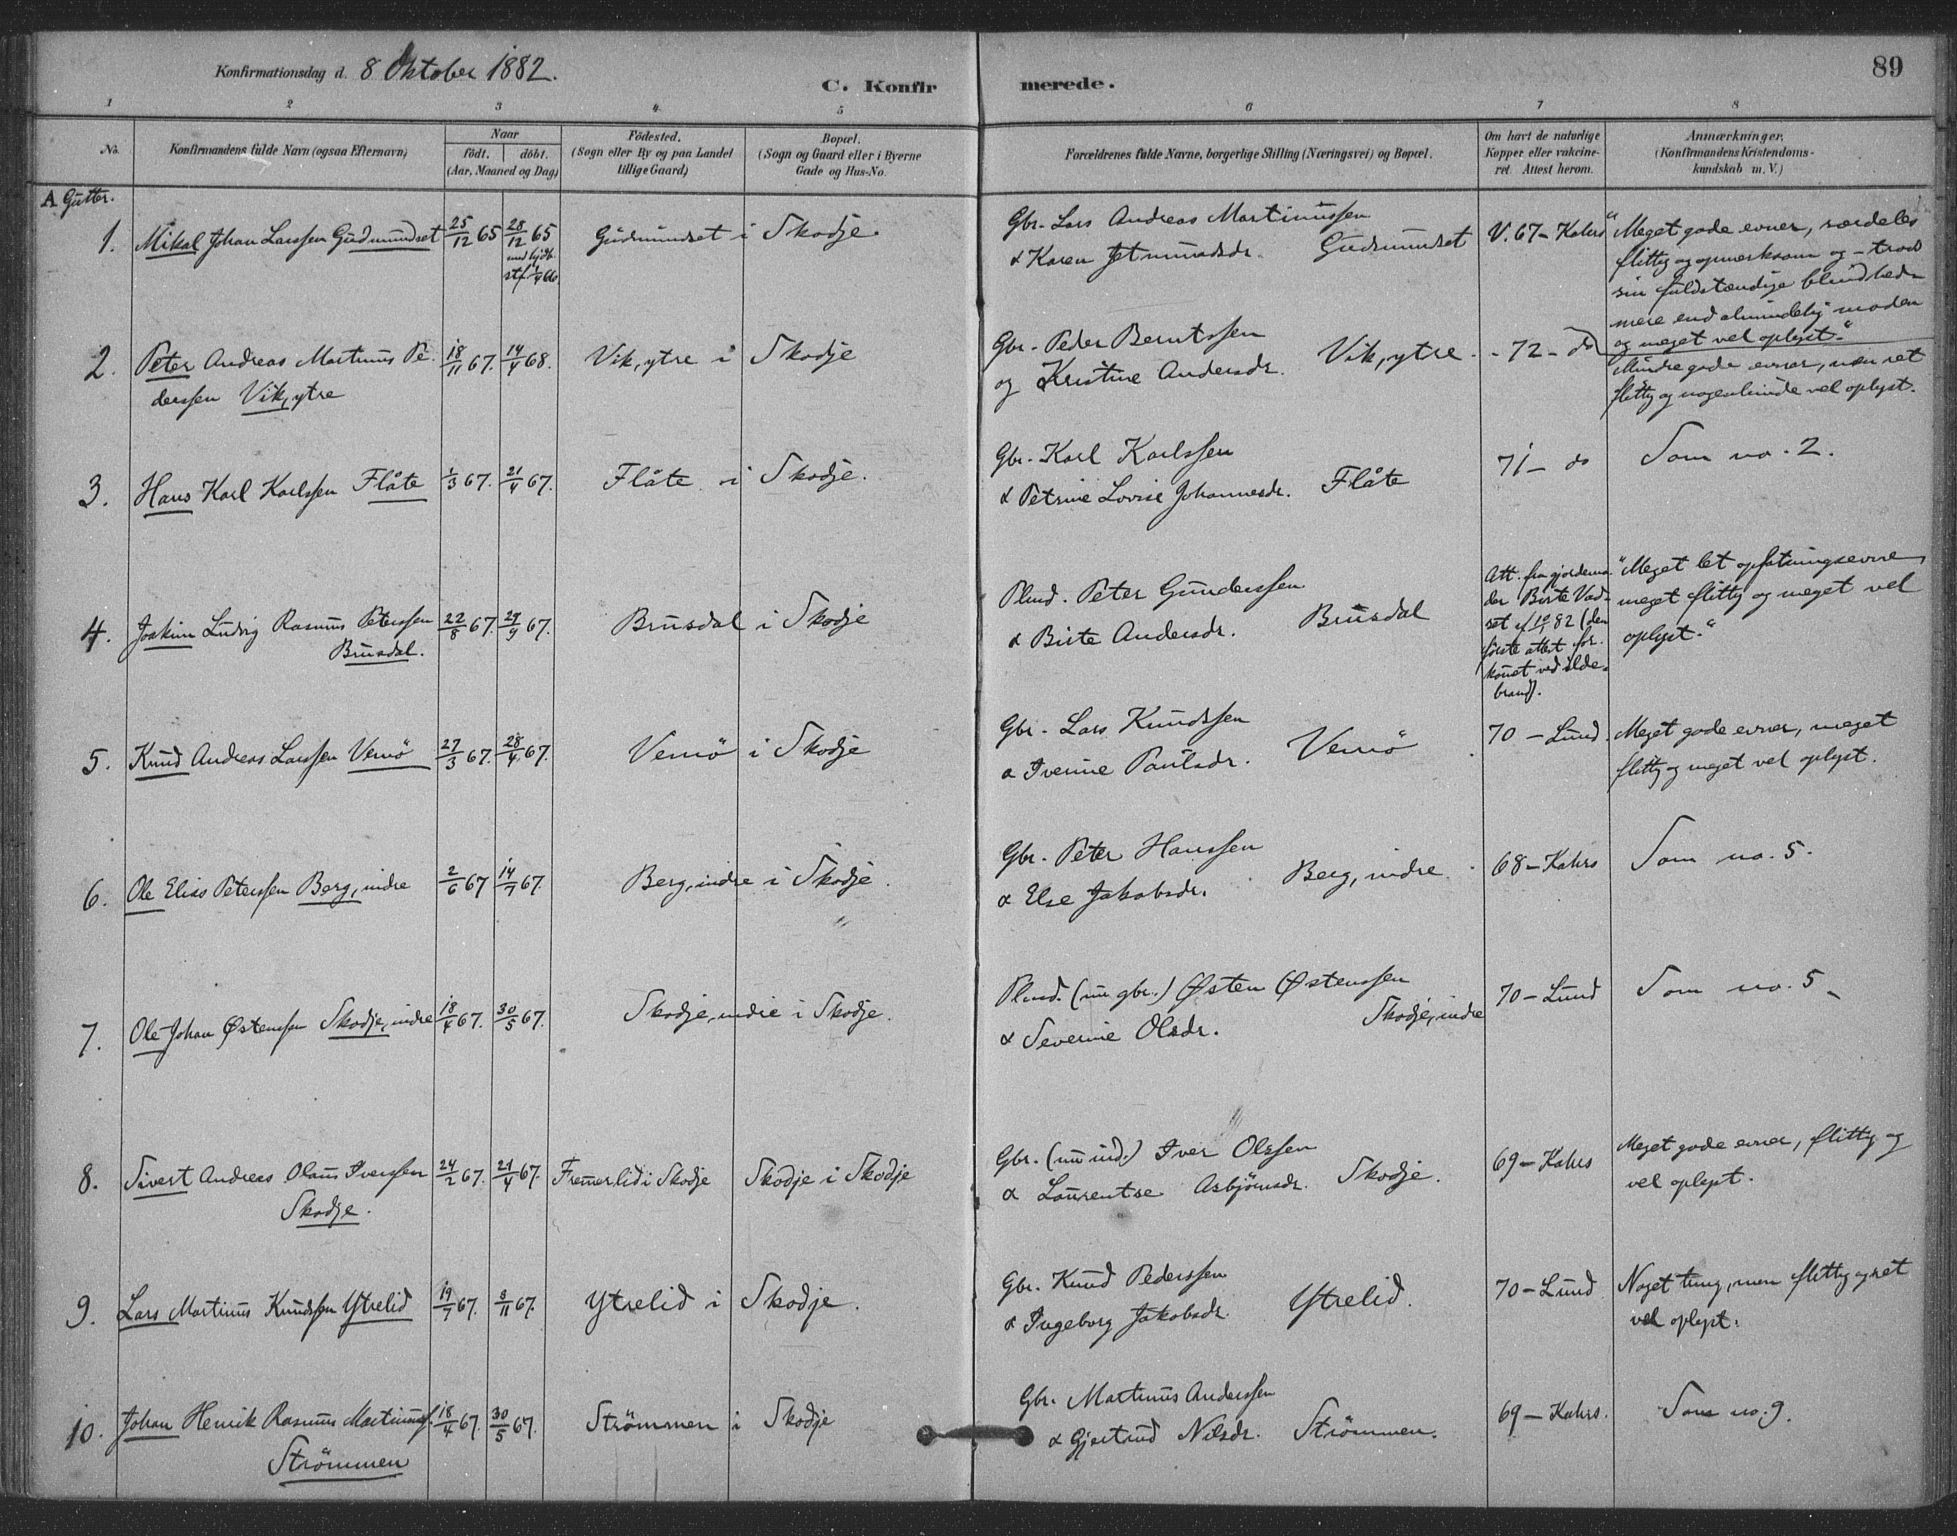 Konfirmationsdag d. 8 Oktober 1882.
C. Konfirmerede.
89
1 2 3 4 5 6 7 8
No.
Konfirmandens fulde Navn (ogsaa Efternavn)
Naar
födt. döbt.
(Aar, Maaned og Dag)
Födested.
(Sogn eller By og paa Landet
tillige Gaard)
Bopæl.
(Sogn og Gaard eller i Byerne
Gade og Hus-No.
Forældrenes fulde Navne, borgerlige Stilling (Næringsvei) og Bopæl.
Om havt de naturlige
Kopper eller vakcine-
ret. Attest herom.
Anmærkninger.
(Konfirmandens Kristendoms-
kundskab m. V.)
A Gutter.
1. Mikal Johan Larssen Gudmundset 25/12 65 28/12 65 Gudmundset i Skodje.
Gbr. Lars Andreas Martinussen
& Karen Jetmundsdr. Gudmundset
V. 67 - Kahrs
"Meget gode evner, særdeles
flittig og opmerksom og - trods
sin fuldstændige blindhed -
mere end almindelig moden
og meget vel oplyst."
2. Peter Andreas Martinus Pe-
derssen Vik, ytre 18/11 67. 14/4 68. Vik, ytre i Skodje
Gbr. Peder Berntssen
og Kristine Andersdr. Vik, ytre.
- 72 - do
Mindre gode evner, men ret
flittig og nogenlunde vel oplyst.
3. Hans Karl Karlssen Flåte 1/3 67. 21/4 67. Flåte i Skodje.
Gbr. Karl Karlssen
& Petrine Lovise Johannesdr. Flåte
71 - do
Som no. 2.
4. Joakim Ludvig Rasmus Peterssen
Brusdal. 22/8 67. 29/9 67. Brusdal i Skodje
Plmd. Peter Gunderssen
& Birte Andersdr. Brusdal
Att. fra gjordemo-
der Birte Vad-
set af 10/1 82 (den
første attest for-
komet ved ilde-
brand).
"Meget let opfatningsevne,
meget flittig og meget vel
oplyst."
5. Knud Andreas Larssen Vemö 27/3 67. 28/4 67. Vemö i Skodje
Gbr. Lars Knudssen
& Iverine Paulsdr. Vemö
70 - Lund.
Meget gode evner, meget
flittig og meget vel oplyst.
6. Ole Elias Peterssen Berg, indre 2/6 67 14/7 67. Berg, indre i Skodje.
Gbr. Peter Hanssen
& Else Jakobsdr. Berg, indre.
68 - Kahrs
Som no. 5.
7. Ole Johan Østenssen Skodje, indre 18/4 67. 30/5 67. Skodje, indre i Skodje.
Plmd. (nu gbr.) Østen Østenssen
& Severine Olsdr. Skodje, indre
70 - Lund
Som no. 5
8. Sivert Andreas Olaus Iverssen
Skodje. 24/2 67. 21/4 67. Fremerlid i Skodje Skodje i Skodje
Gbr. (nu ind.) Iver Olssen
& Laurentse Asbjörnsdr. Skodje.
69 - Kahrs
Meget gode evner, flittig og
vel oplyst.
9. Lars Martinus Knudssen Ytrelid 19/7 67. 8/11 67. Ytrelid i Skodje.
Gbr. Knud Pederssen
& Ingeborg Jakobsdr. Ytrelid.
70 - Lund
Noget tung, men flittig og ret
vel oplyst.
10. Johan Henrik Rasmus Martinuss.
Strömmen 18/4 67. 30/5 67. Strömmen i Skodje
Gbr. Martinus Anderssen
& Gjertrud Nilsdr. Strömmen.
69 - Kahrs.
Som no. 9.